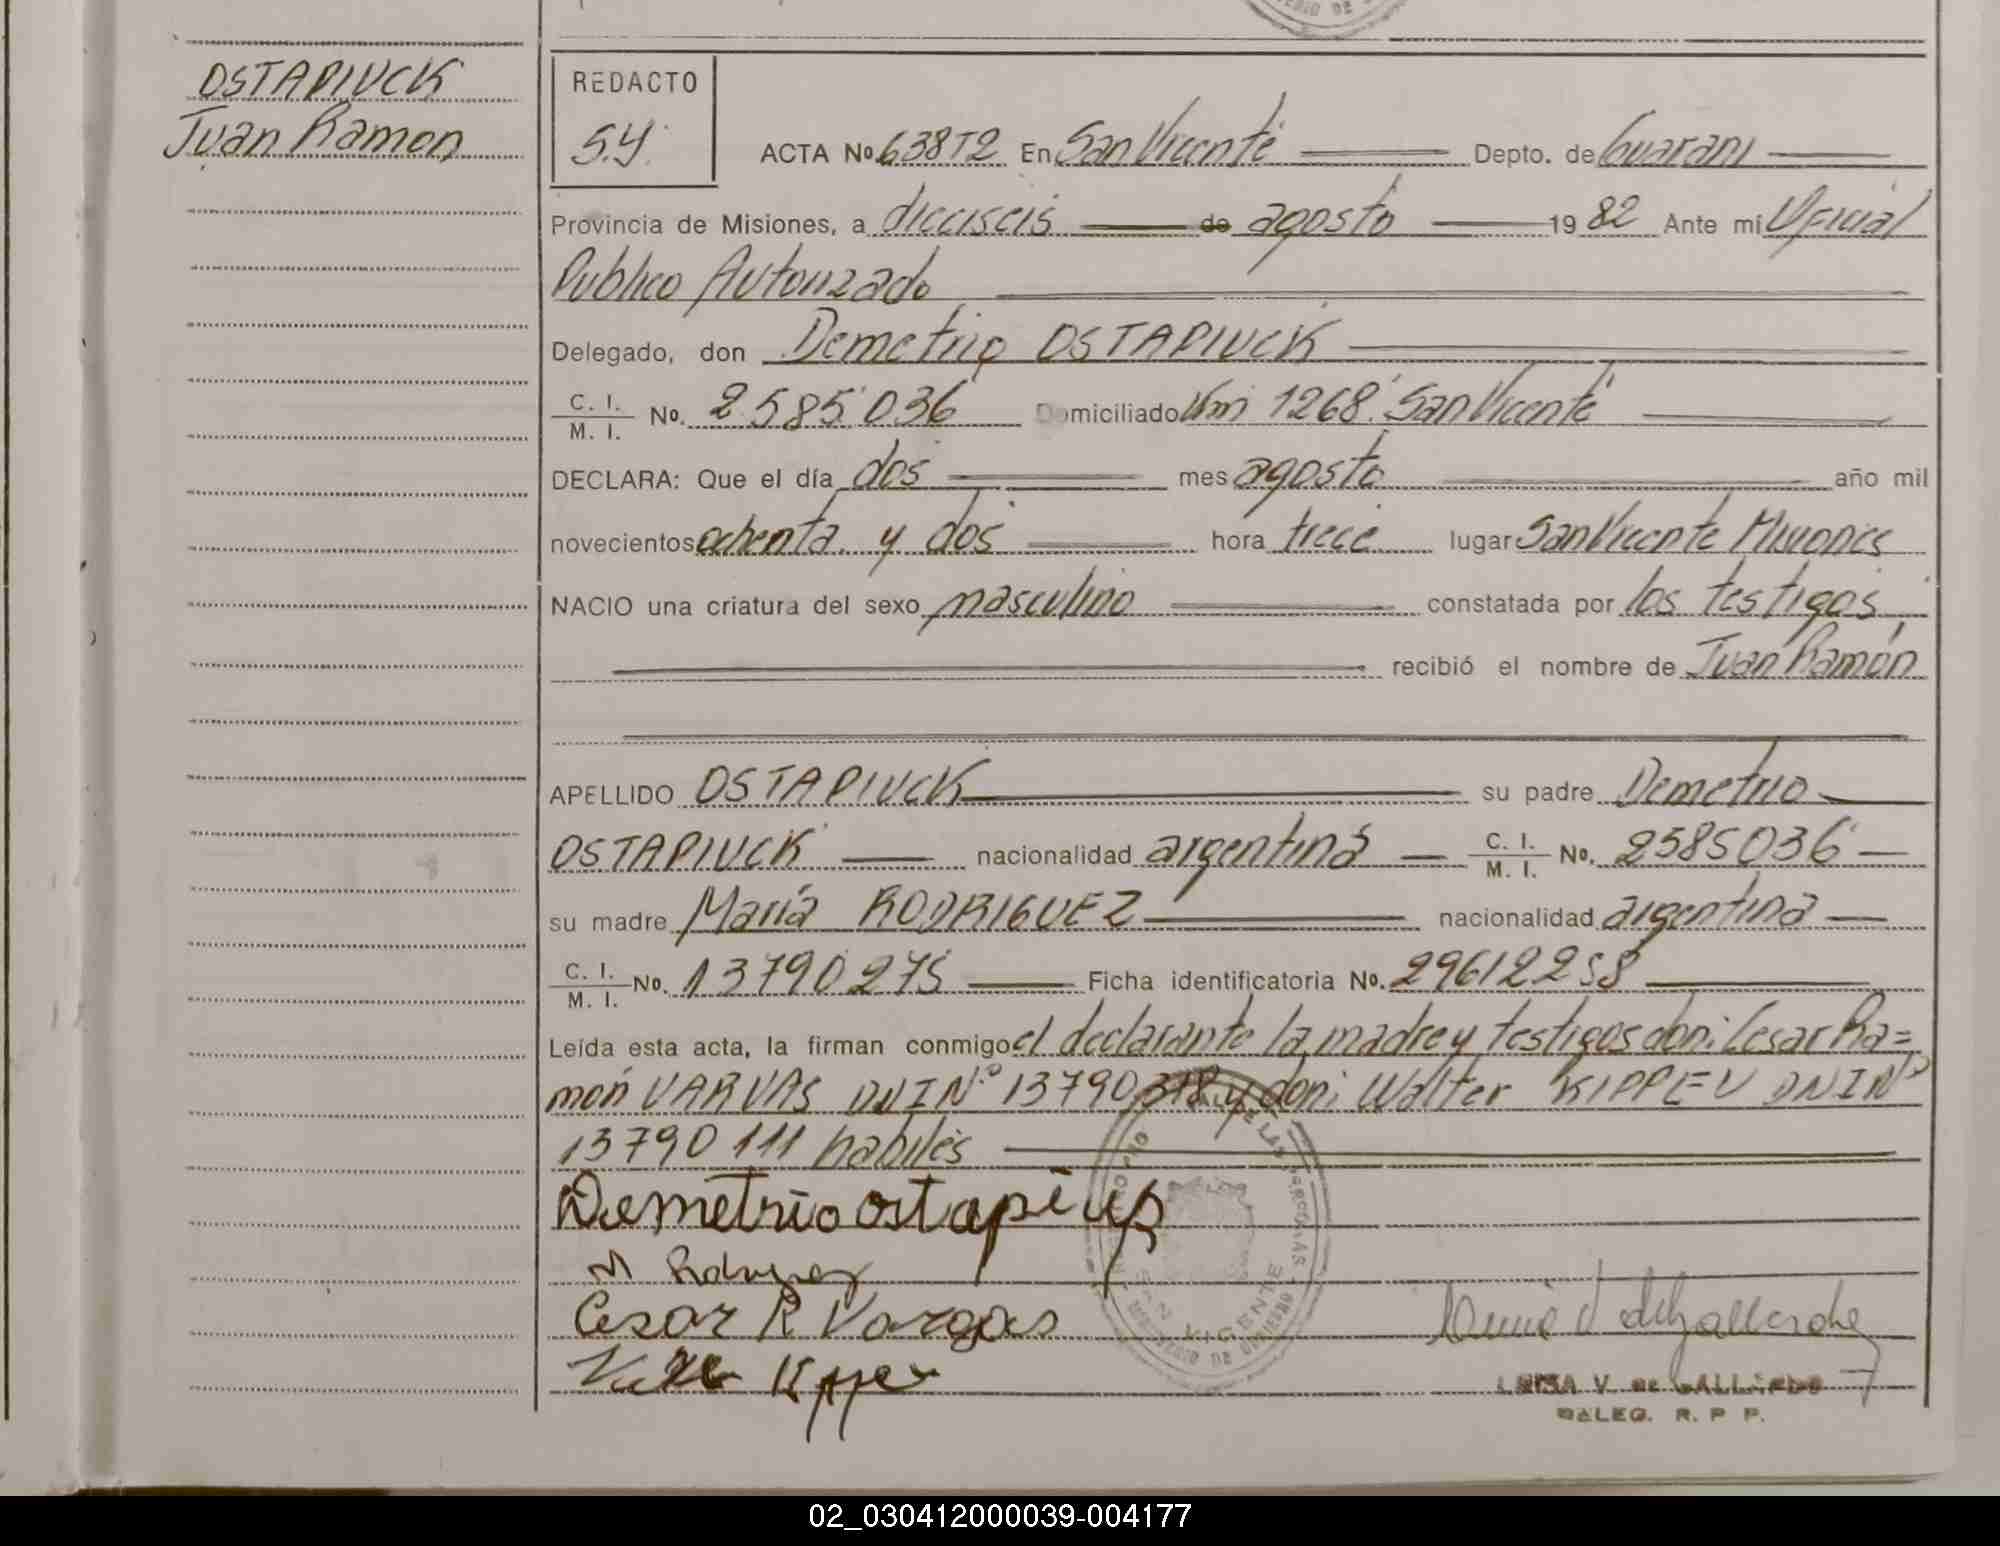 OSTAPIUCK
Juan Ramon
REDACTO
S.Y.
ACTA No. 638T2 En San Vicente Depto. de Guaraní
Provincia de Misiones, a dieciseis de agosto 1982 Ante mí Oficial
Publico Autorizado
Delegado, don Demetrio OSTAPIUCK
C. I. / M. I. No. 2.585.036 Domiciliado Km 1268. San Vicente
DECLARA: Que el día dos mes agosto año mil
novecientos ochenta y dos hora trece lugar San Vicente Misiones
NACIO una criatura del sexo masculino constatada por los testigos,
recibió el nombre de Juan Ramón
APELLIDO OSTAPIUCK su padre Demetrio
OSTAPIUCK nacionalidad argentina C. I. / M. I. No. 2585036
su madre María RODRIGUEZ nacionalidad argentina
C. I. / M. I. No. 13790275 Ficha identificatoria No. 29612258
Leída esta acta, la firman conmigo el declarante la madre y testigos don: Cesar Ra=
món VARVAS DNI Nº 13790318 y don: Walter KIPPEV DNI Nº
13790111 habiles
Demetrio ostapiup
M Rodriguez
Cesar R Vargas
Kipper
SAN VICENTE
LUISA V. DE GALLARDO
DELEG. R. P. P.
02_030412000039-004177